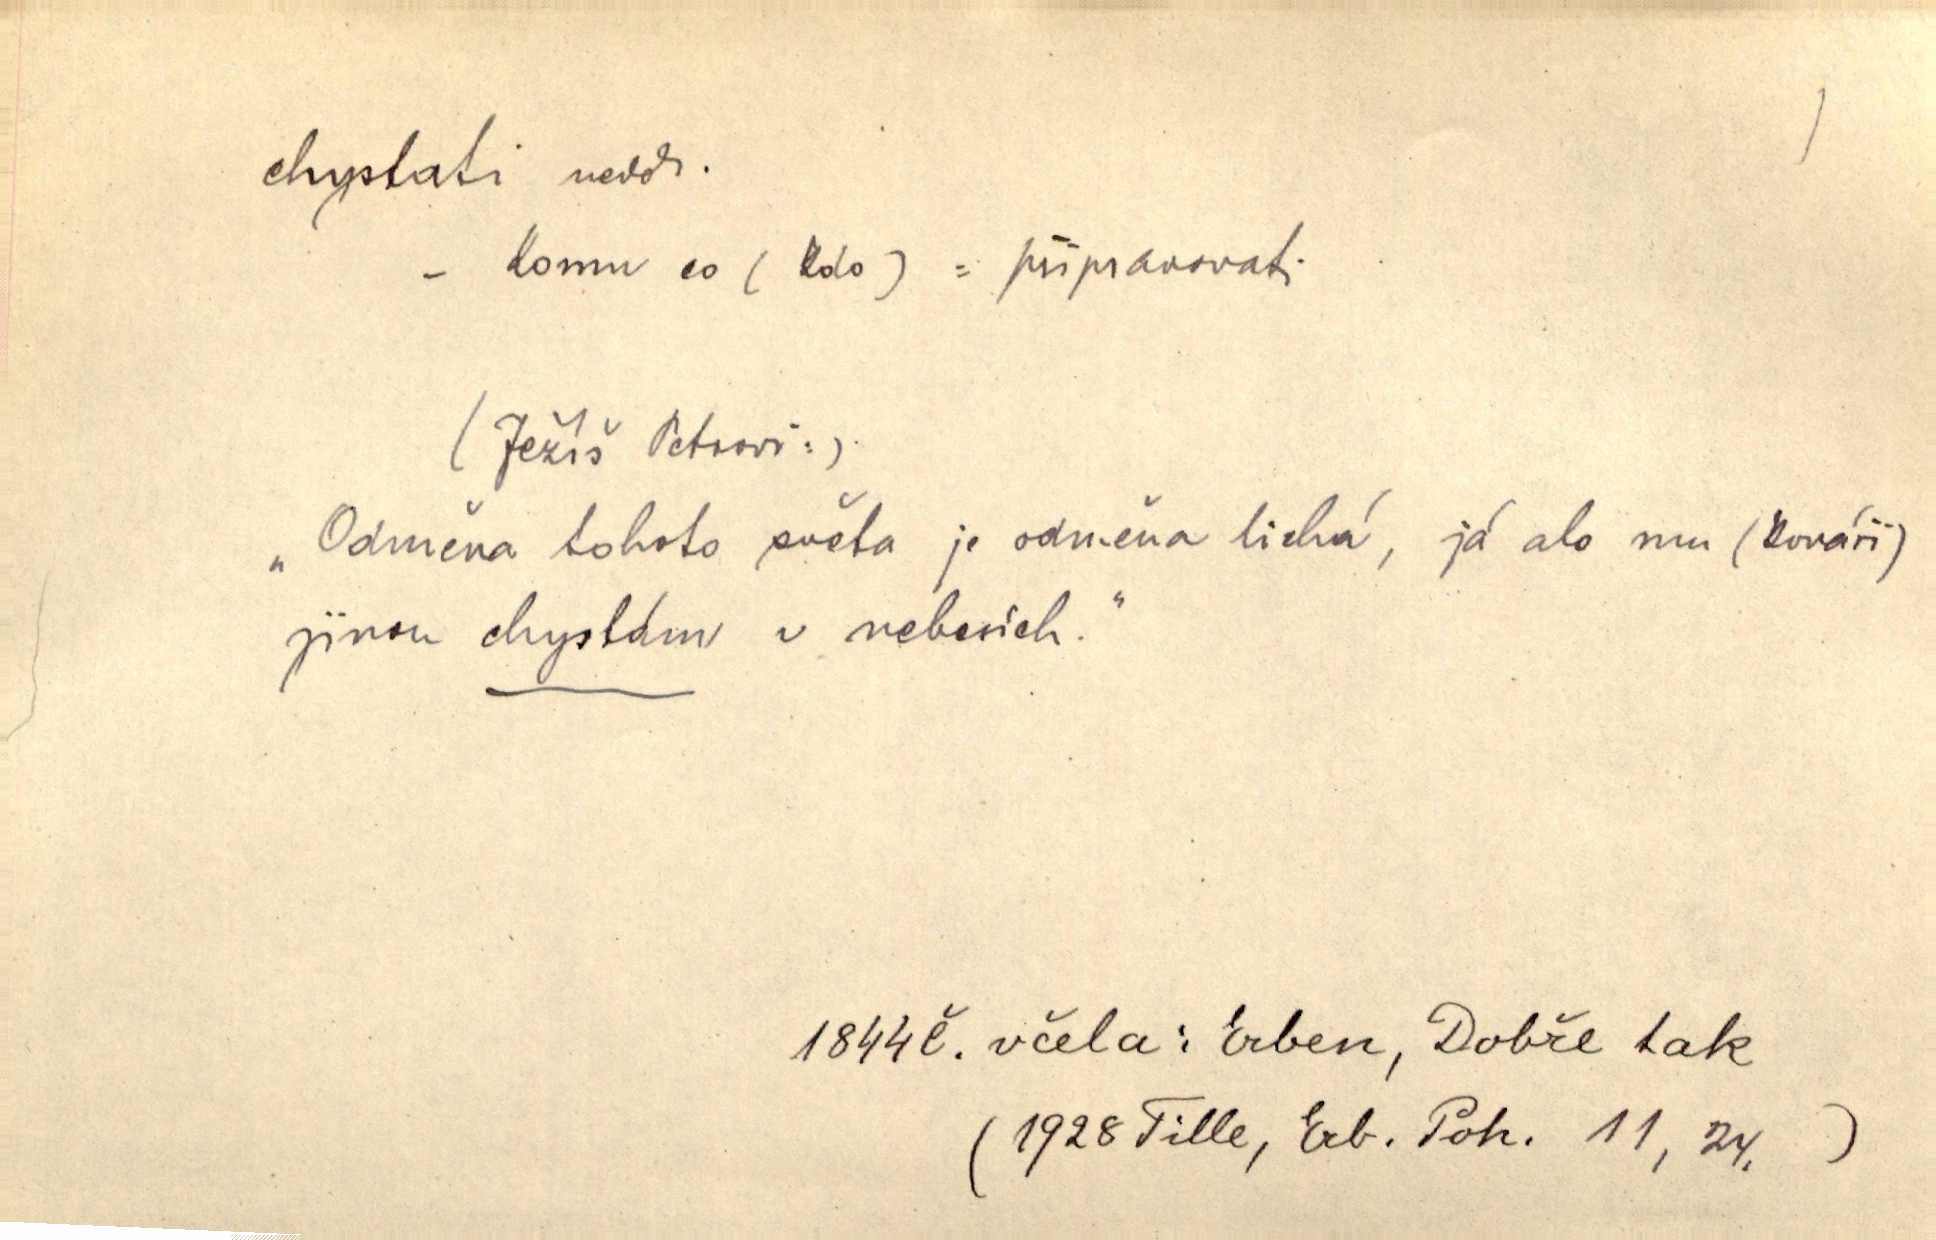 chystati nedok.
- komu co (kdo) = připravovati
(Ježíš Petrovi:)
„Odměna tohoto světa je odměna lichá, já ale mu (kováři)
jinou chystám v nebesích."
1844 Č. včela: Erben, Dobře tak
(1928 Tille, Erb. Poh. 11, 24. )